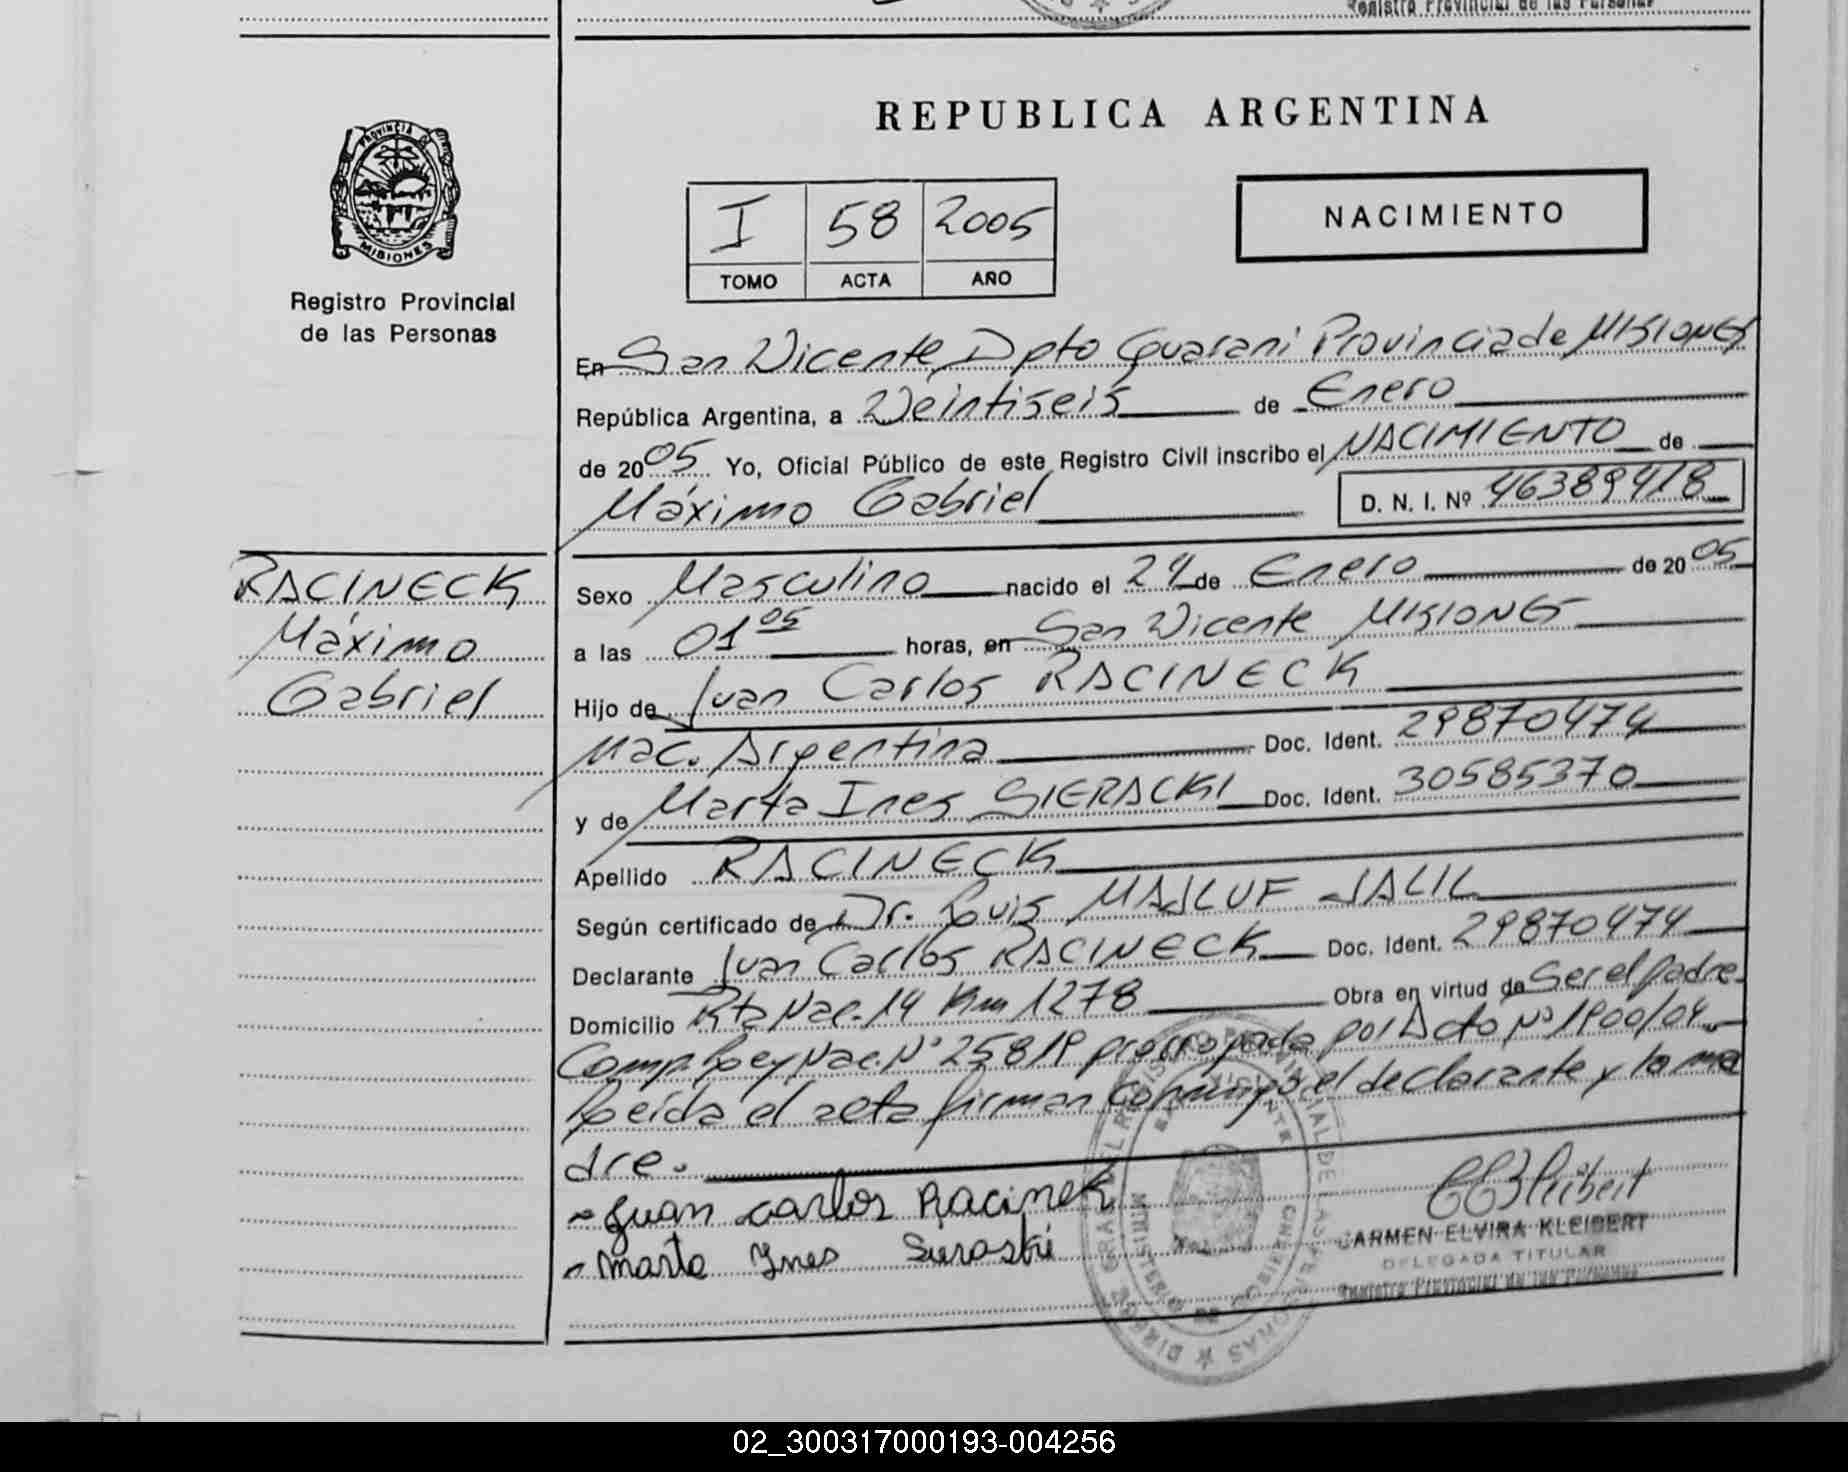 Registro Provincial de las Personas
REPUBLICA ARGENTINA
PROVINCIA DE
MISIONES
Registro Provincial
de las Personas
I 58 2005
TOMO ACTA AÑO
NACIMIENTO
En San Vicente, Dpto Guarani Provincia de MISIONES
República Argentina, a Veintiseis de Enero
de 2005 Yo, Oficial Público de este Registro Civil inscribo el NACIMIENTO de
Máximo Gabriel D. N. I. Nº 46389418
RACINECK
Máximo
Gabriel
Sexo Masculino nacido el 24 de Enero de 2005
a las 01 05 horas, en San Vicente MISIONES
Hijo de Juan Carlos RACINECK
Nac. Argentina Doc. Ident. 29870474
y de Marta Ines SIERACKI Doc. Ident. 30585370
Apellido RACINECK
Según certificado de Dr. Luis MAJLUF JALIL
Declarante Juan Carlos RACINECK Doc. Ident. 29870474
Domicilio Rta Nac. 14 Km 1278 Obra en virtud de Ser el padre.
Comp. Ley Nac. Nº 25819 prorrogada por Dcto Nº 1900/04.
Leída el acta firman conmigo el declarante y la ma
dre.
Juan Carlos Racinek
Marta Ines
CARMEN ELVIRA KLEIBERT
DELEGADA TITULAR
Registro Provincial de las Personas
02_300317000193-004256